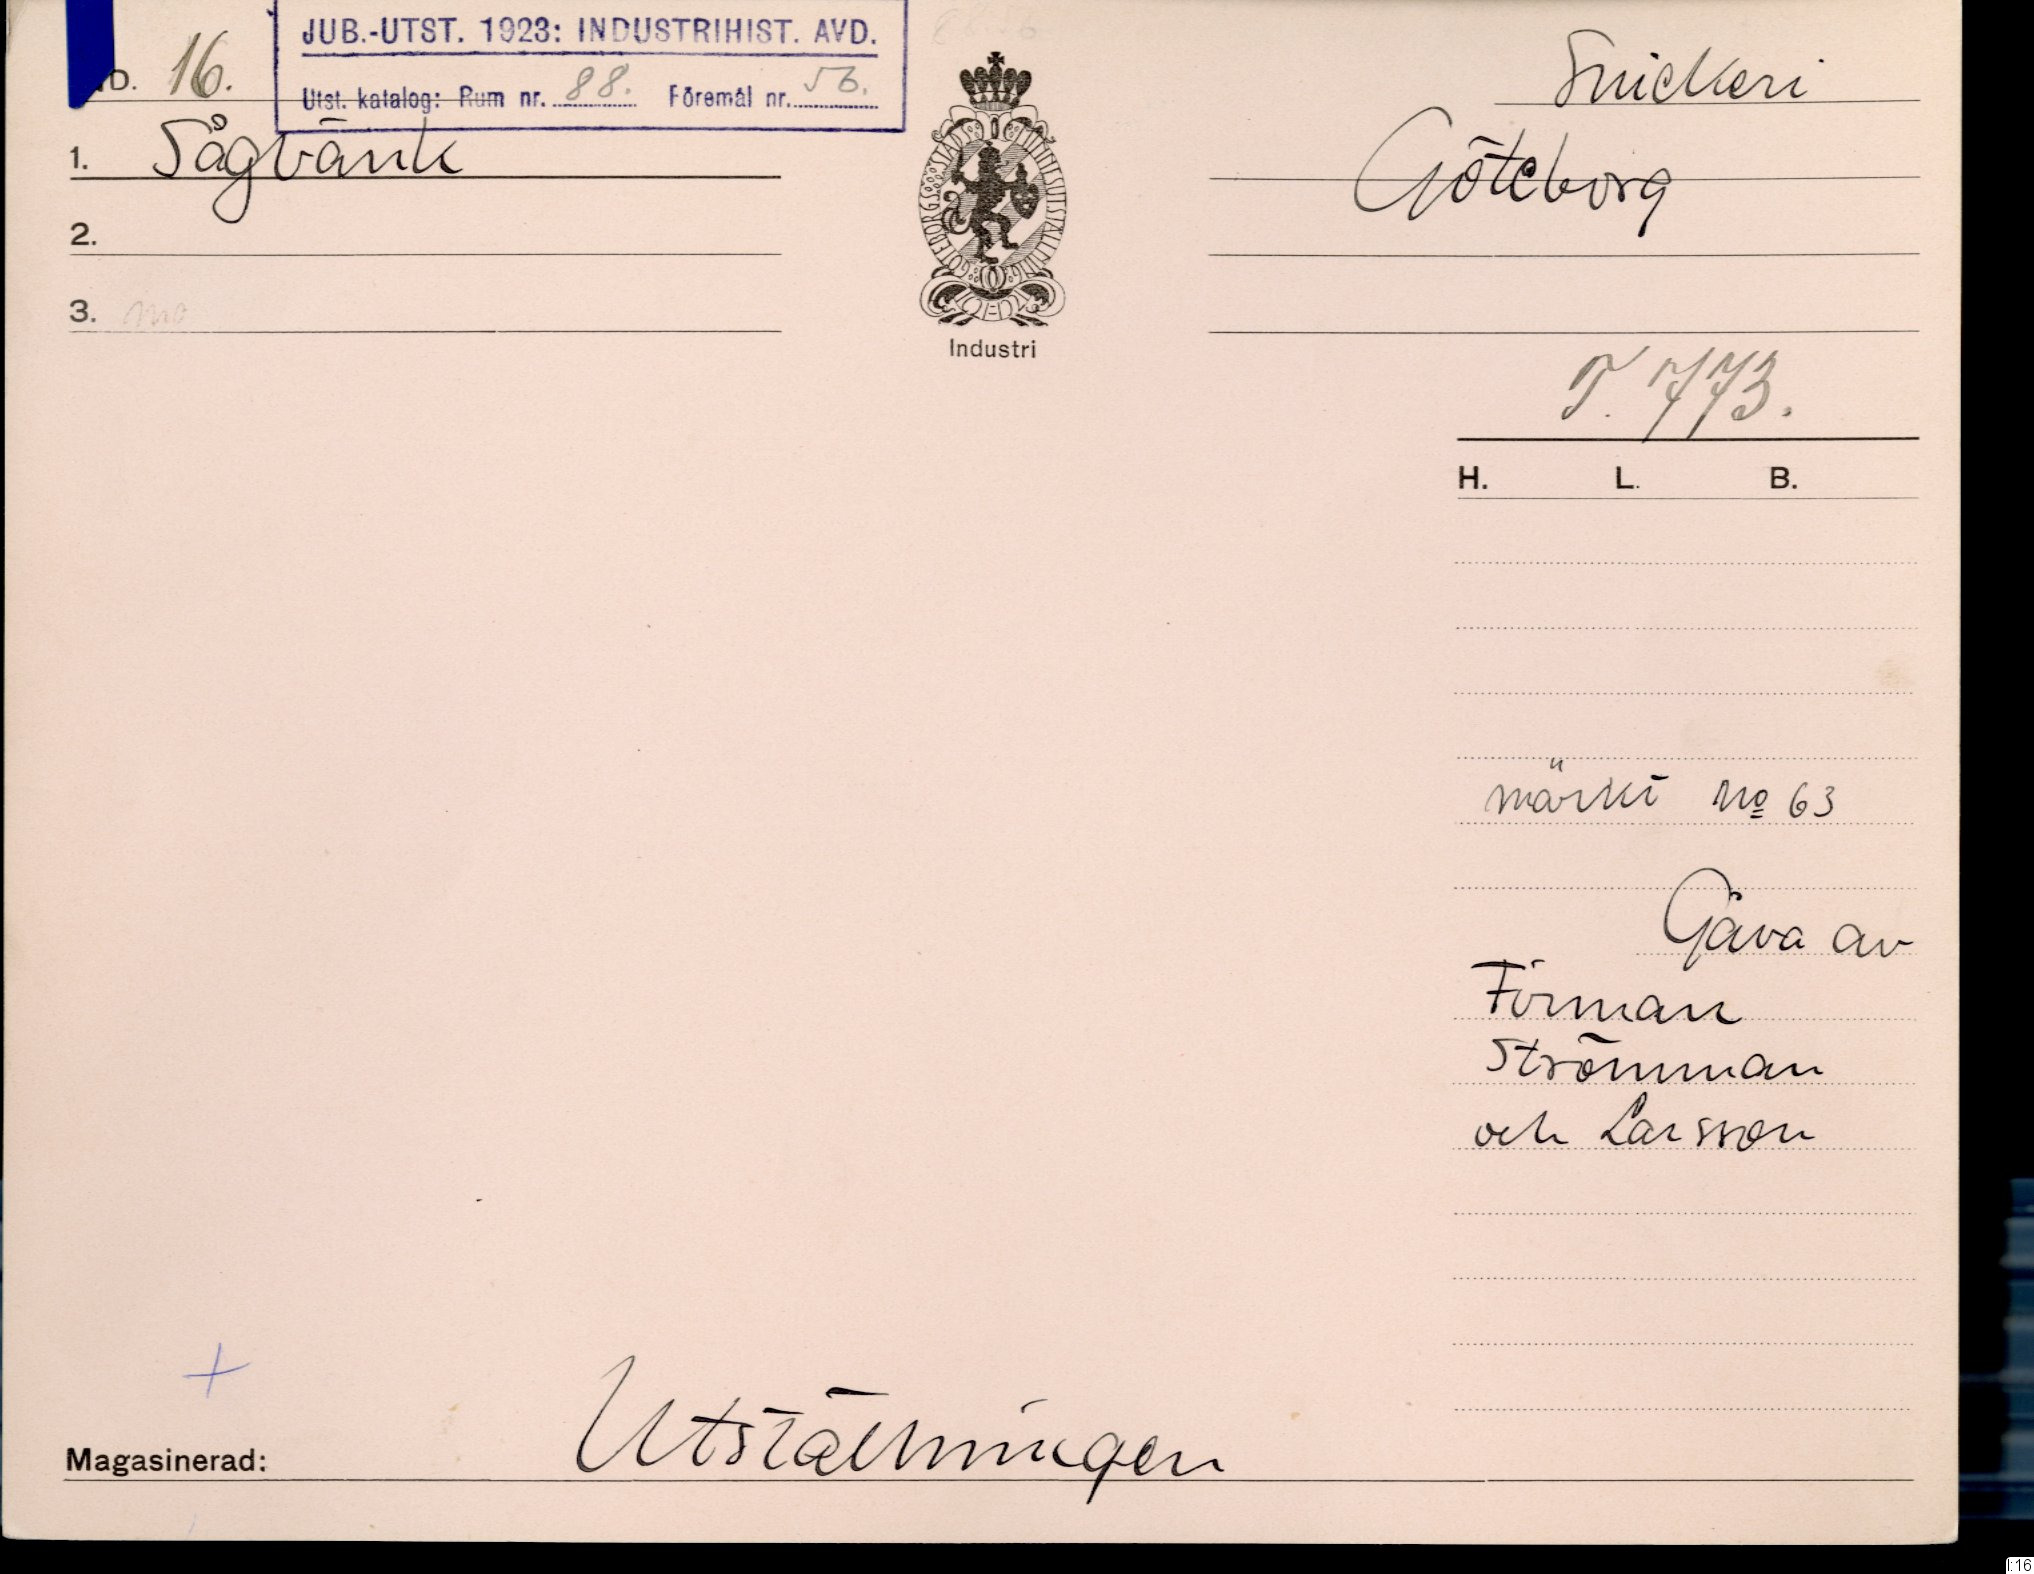 JUB.-UTST. 1923: INDUSTRIHIST. AVD.
Utst. katalog: Rum nr. 88. Föremål nr. 56.
D. 16.
Snickeri
1. Sågbänk
Göteborg
2.
3. no
GÖTEBORGS STADS MINNESUTSTÄLLNING
Industri
T. 773.
H. L. B.
märkt No 63
Gåva av
Firman
Strömman
och Larsson
Magasinerad: Utställningen
I:16